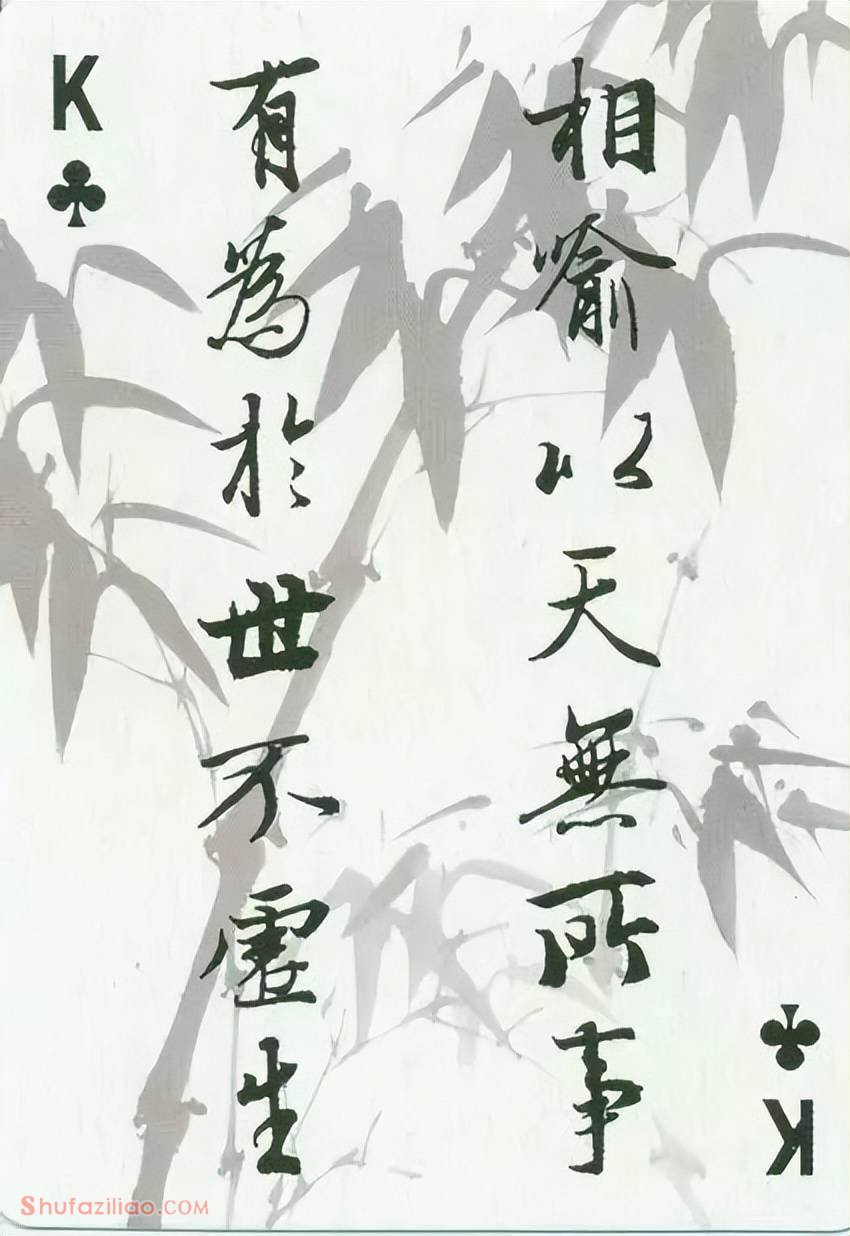 K
相喻以天無所事
有為於世不虛生
K
Shufaziliao.COM